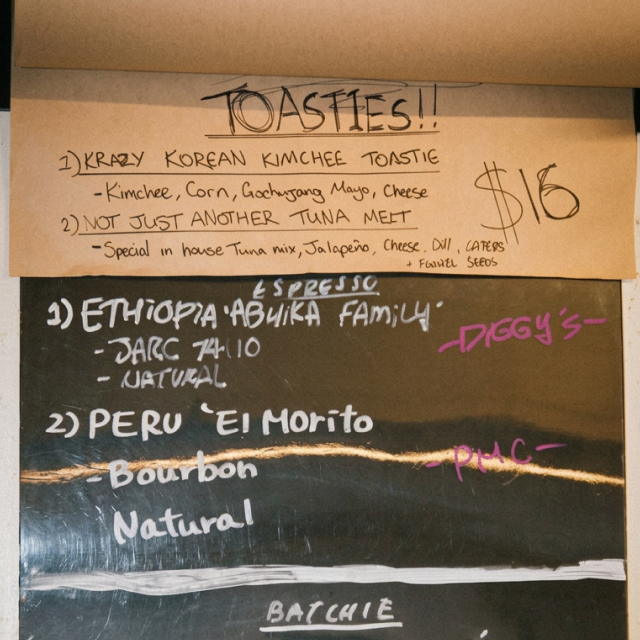 TOASTIES!!
1) KRAZY KOREAN KIMCHEE TOASTIE
- Kimchee, Corn, Gochujang Mayo, Cheese
$16
2) NOT JUST ANOTHER TUNA MELT
- Special in house Tuna mix, Jalapeño, Cheese, Dill, CAPERS
+ FENNEL SEEDS
ESPRESSO
1) ETHIOPIA 'ABYIKA FAMILY'
- DIGGY'S -
- JARC 74110
- NATURAL
2) PERU 'El Morito
- PMC -
- Bourbon
Natural
BATCHIE